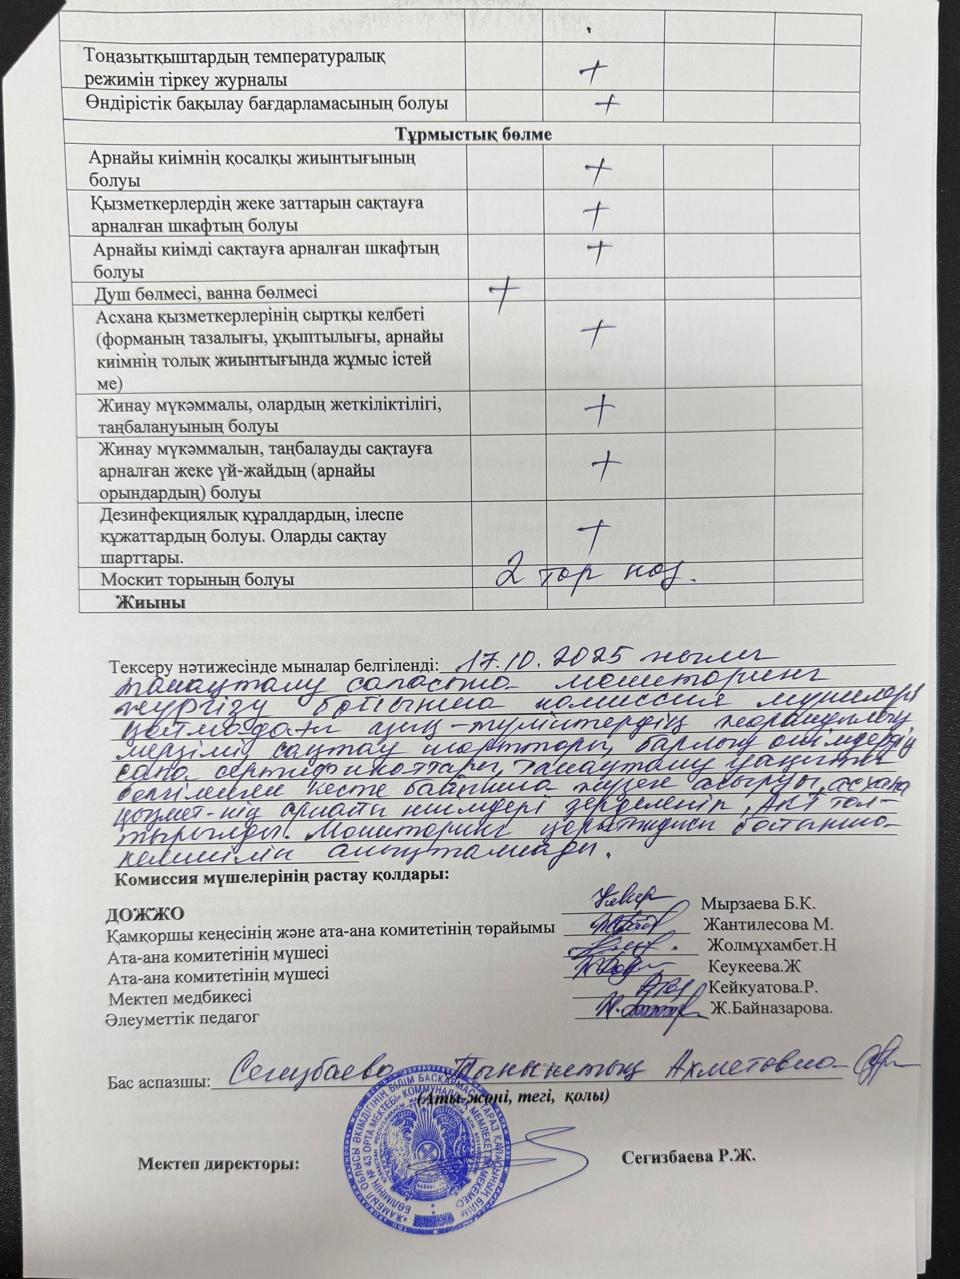 Тоңазытқыштардың температуралық
режимін тіркеу журналы +
Өндірістік бақылау бағдарламасының болуы +
Тұрмыстық бөлме
Арнайы киімнің қосалқы жиынтығының
болуы +
Қызметкерлердің жеке заттарын сақтауға
арналған шкафтың болуы +
Арнайы киімді сақтауға арналған шкафтың
болуы +
Душ бөлмесі, ванна бөлмесі +
Асхана қызметкерлерінің сыртқы келбеті
(форманың тазалығы, ұқыптылығы, арнайы
киімнің толық жиынтығында жұмыс істей
ме) +
Жинау мүкәммалы, олардың жеткіліктілігі,
таңбалануының болуы +
Жинау мүкәммалын, таңбалауды сақтауға
арналған жеке үй-жайдың (арнайы
орындардың) болуы +
Дезинфекциялық құралдардың, ілеспе
құжаттардың болуы. Оларды сақтау
шарттары. +
Москит торының болуы 2 тор
Жиыны
Тексеру нәтижесінде мыналар белгіленді: 17.10.2025 жылы
тамақтану сапасына мониторинг
жүргізу бойынша комиссия мүшелері
қоймадағы азық-түліктердің жарамдылық
мерзімі сақтау шарттары, барлық өнімдердің
сапа сертификаттары, тамақтану уақыты
белгіленген кесте бойынша жүзеге асыруы, асхана
қызмет-нің арнайы киімдері зерделеніп, АКТ тол-
тырылды. Мониторинг қорытындысы бойынша
анықталмады.
Комиссия мүшелерінің растау қолдары:
ДОЖЖО Мырзаева Б.К.
Қамқоршы кеңесінің және ата-ана комитетінің төрайымы Жантилесова М.
Ата-ана комитетінің мүшесі Жолмұхамбет.Н
Ата-ана комитетінің мүшесі Кеукеева.Ж
Мектеп медбикесі Кейкуатова.Р.
Әлеуметтік педагог Ж.Байназарова.
Бас аспазшы: Сегизбаева Тыныштық Ахметовна
(Аты-жөні, тегі, қолы)
Мектеп директоры: Сегизбаева Р.Ж.